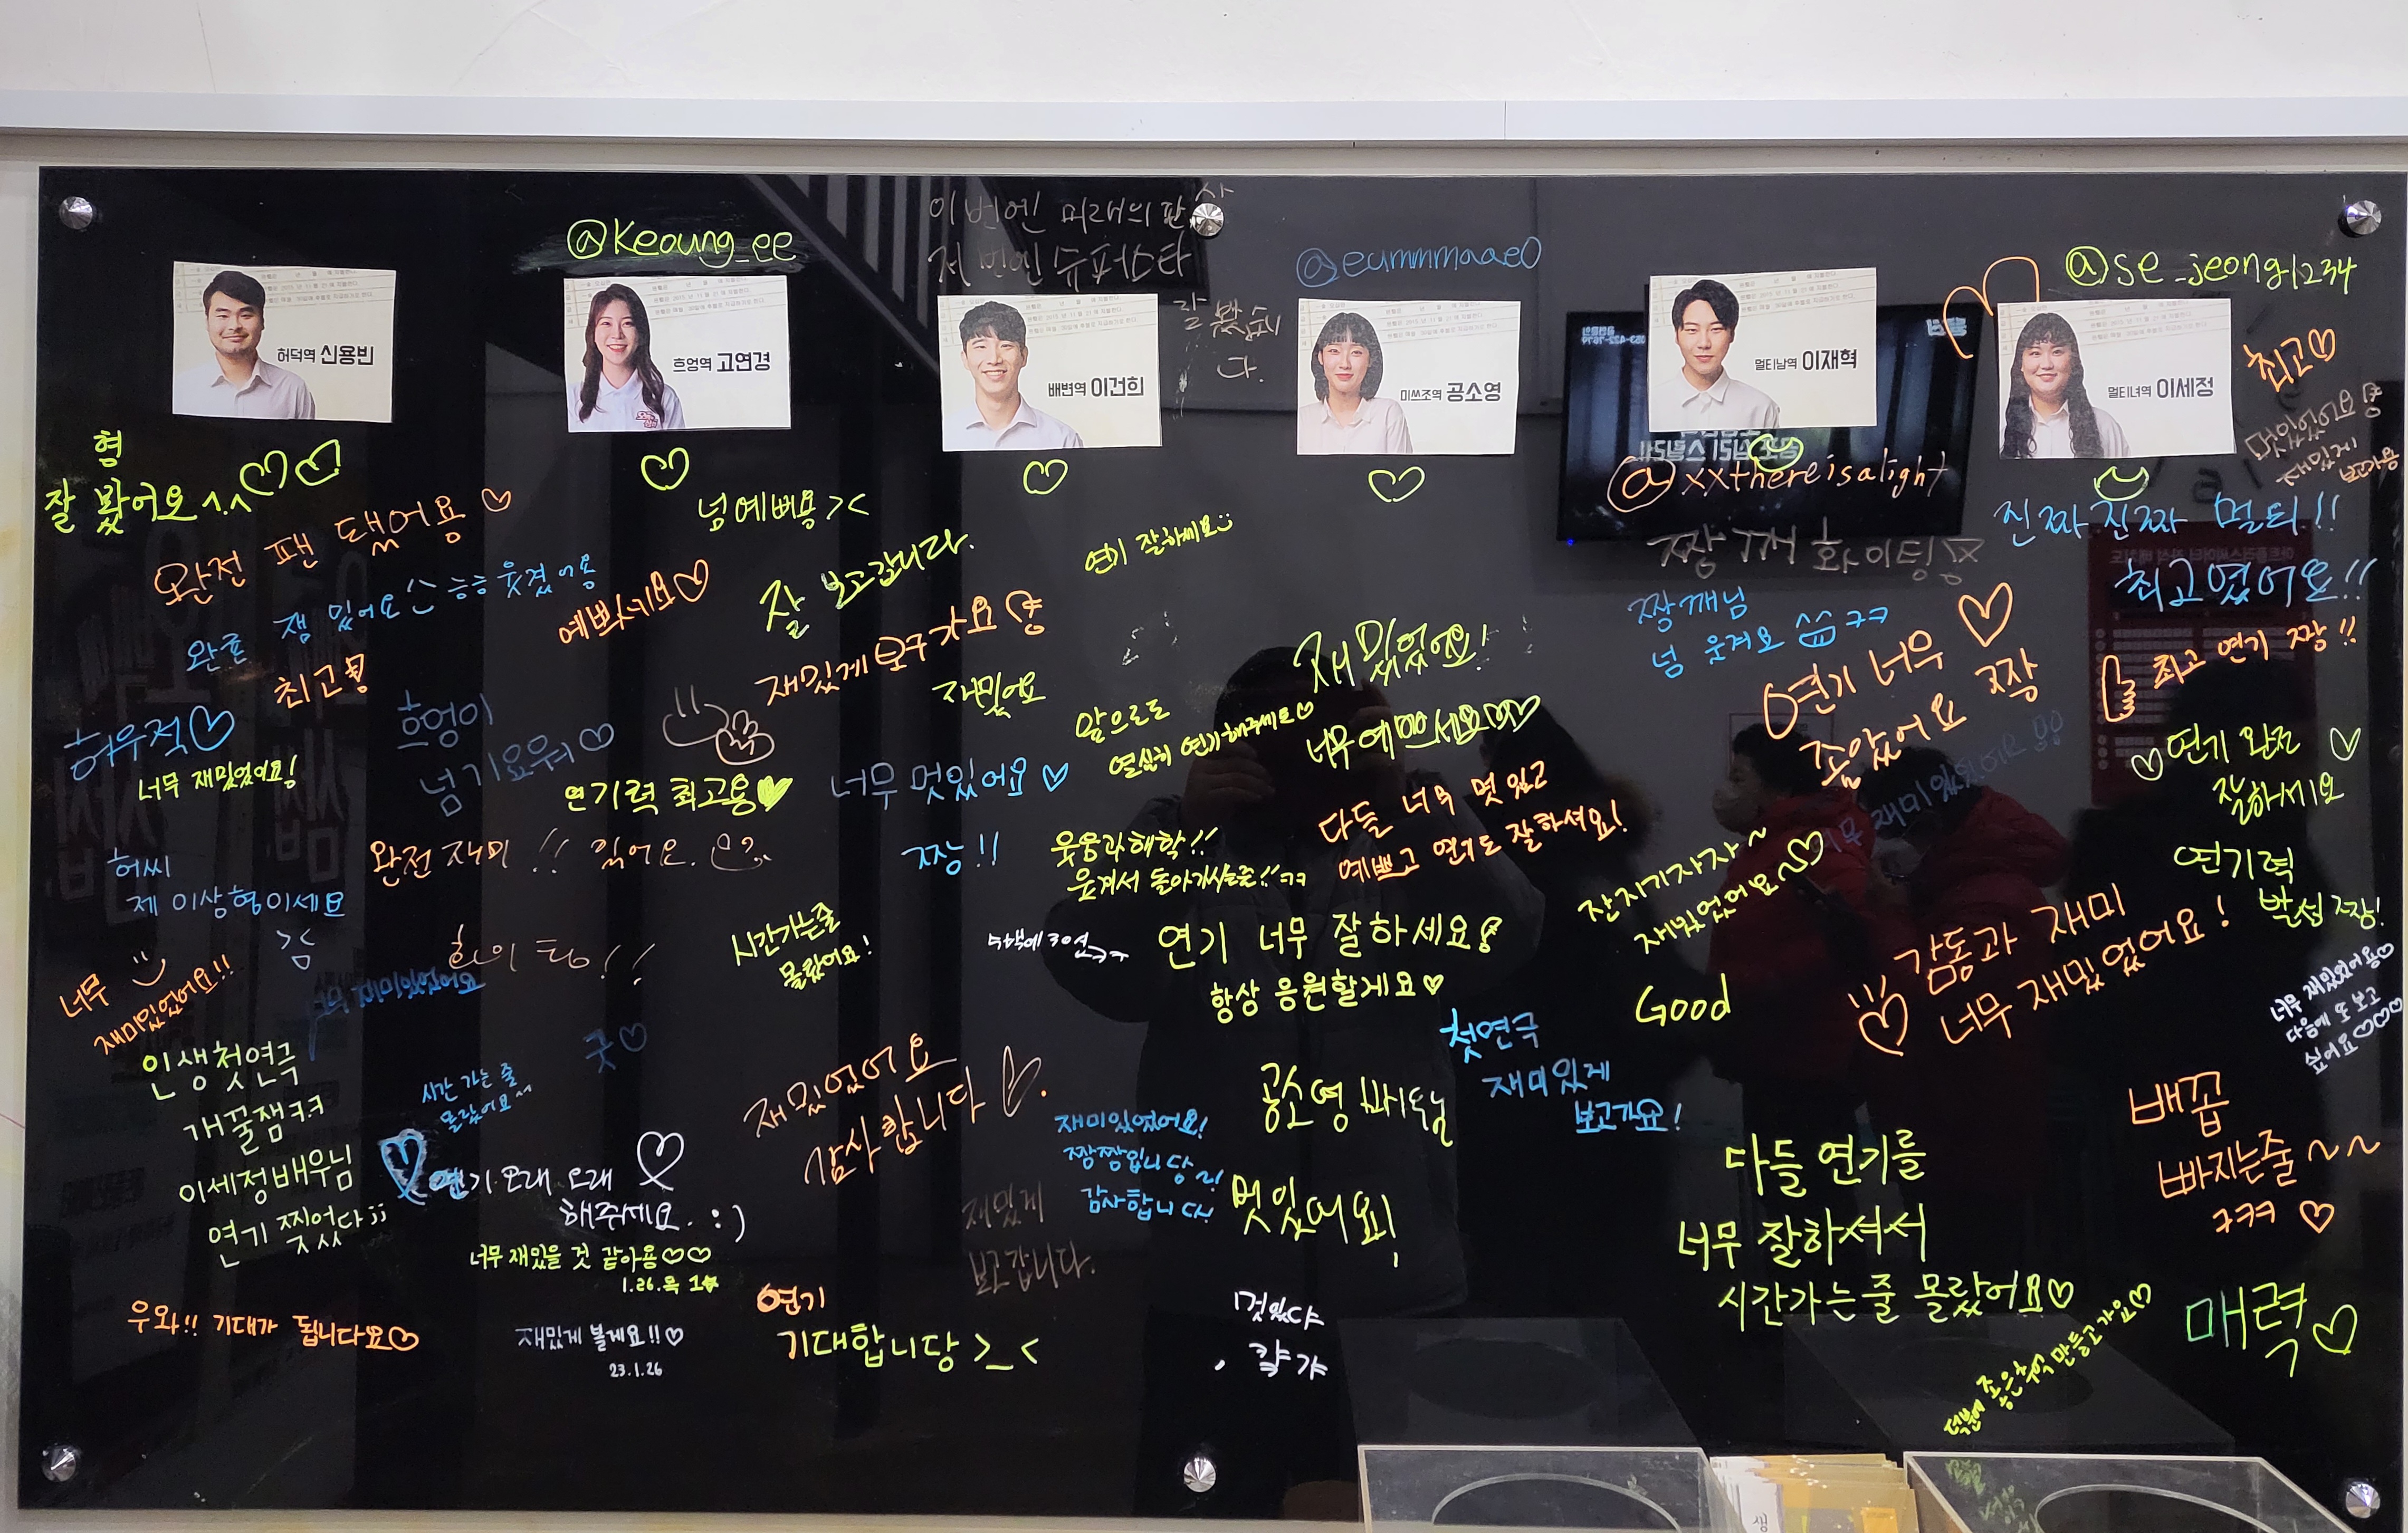 @keoung_ee
이번엔 미래의 판사
저번엔 슈퍼스타
잘 봤습니
다.
@eummmaae0
@se_jeong1234
허덕역 신용빈
흐엉역 고연경
배변역 이건희
미쓰조역 공소영
멀티남역 이재혁
멀티녀역 이세정
최고♡
멋있었어요
재밌게
보고가용
@xxthereisalight
형
잘 봤어요^.^♡♡
완전 팬 됐어용 ♡
넘예뻐용 ><
잘 보고갑니다.
연기 잘하세요
짱깨 화이팅
진짜진짜 멀티!!
최고였어요!!
완죤 잼있어요 ㅎㅎ 웃겼어용
예쁘시네요♡
재밌게 보구가요
재밌었어요!
짱깨님
넘 웃겨요 ㅋㅋ
최고
허우적♡
너무 재밌었어요!
흐엉이
넘 기요워♡
연기력 최고용♥
재밌어요
앞으로도
열실히 연기해주세요♡
너무예쁘세요♡♡
연기 너무
조았어요 짱
최고 연기 짱!!
♡연기 완전 ♡
잘하세요
너무 멋있어요 ♡
짱!!
완전재미!! 있어요.
웃음과 해학!!
웃겨서 돌아가시는줄!!ㅋㅋ
다들 너무 멋있고
예쁘고 연기도 잘하셔요!
잔자기자자~
재밌었어요~♡
연기력
발성 짱!
허씨
제 이상형이세요
시간가는줄
몰랐어요!
연기 너무 잘하세요!
항상 응원할게요♡
감동과 재미
너무 재밌었어요!
너무
재미있었어요!!
재미있었어요
인생첫연극
개꿀잼ㅋㅋ
이세정배우님
연기 찢었다;;
굿♡
시간 가는 줄
몰랐어요~
재밌었어요
감사합니다♡.
Good
첫연극
재미있게
보고가요!
너무 재밌었어용♡
다음에 또 보고
싶어요♡♡♡
공소영 배우님
멋있어요!
재미있었어요!
짱짱입니당~!
감사합니다!
연기 오래오래
해주세요. :)
너무 재밌을 것 같아용♡♡
1.26.목
재밌게
보고갑니다.
다들 연기를
너무 잘하셔서
시간가는줄 몰랐어요♡
배꼽
빠지는줄~~
ㅋㅋㅋ ♡
우와!! 기대가 됩니다요♡
재밌게 볼게요!!♡
23.1.26
연기
기대합니당 >_<
멋있다
덕분에 좋은추억 만들고가요♡
매력♡